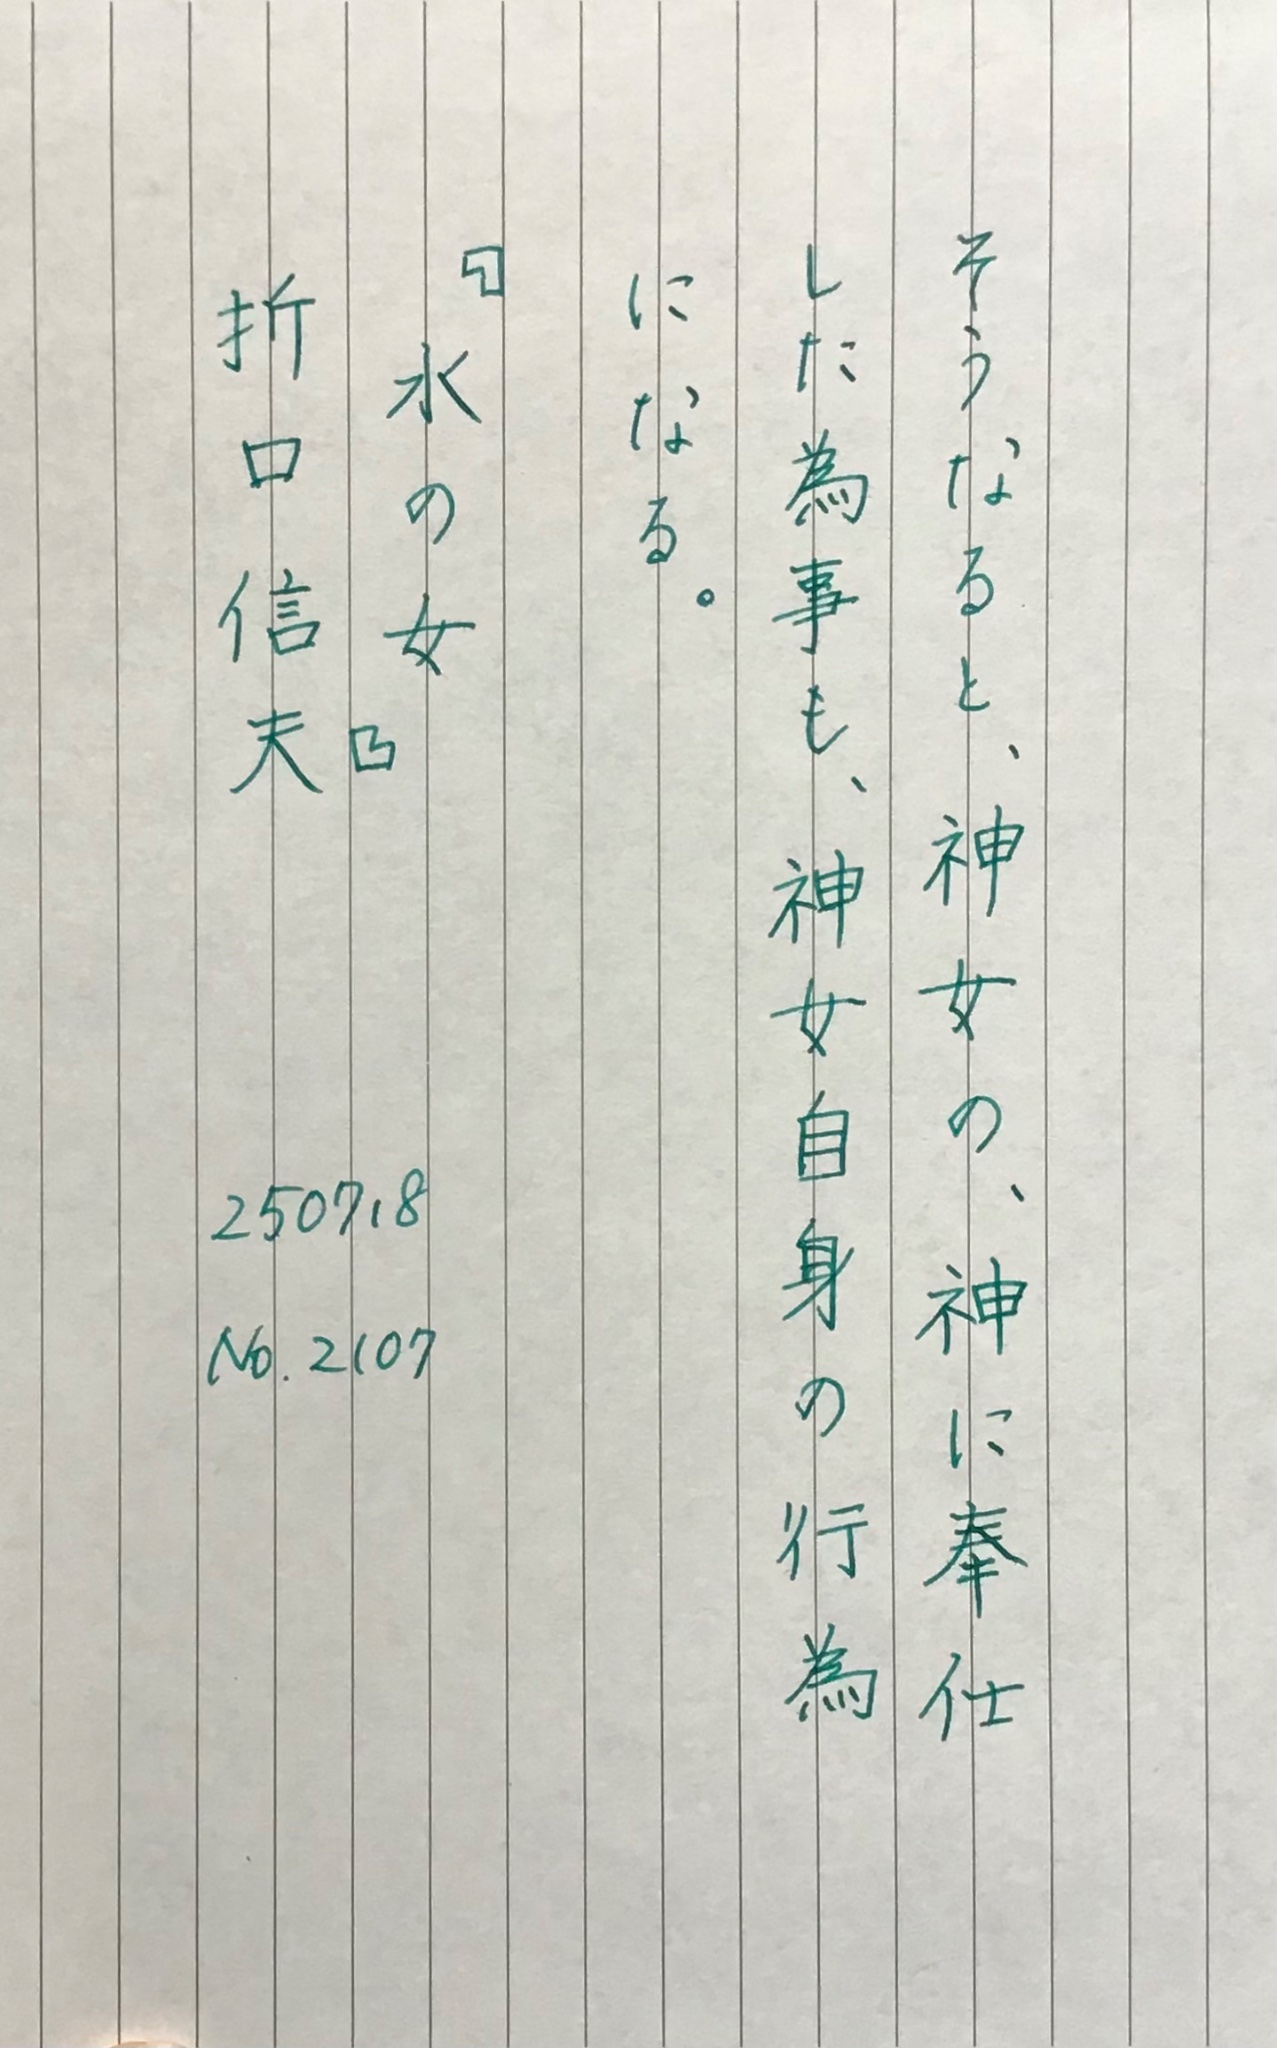 そうなると、神女の、神に奉仕
した為事も、神女自身の行為
になる。
『水の女』
折口信夫
250718
No.2107